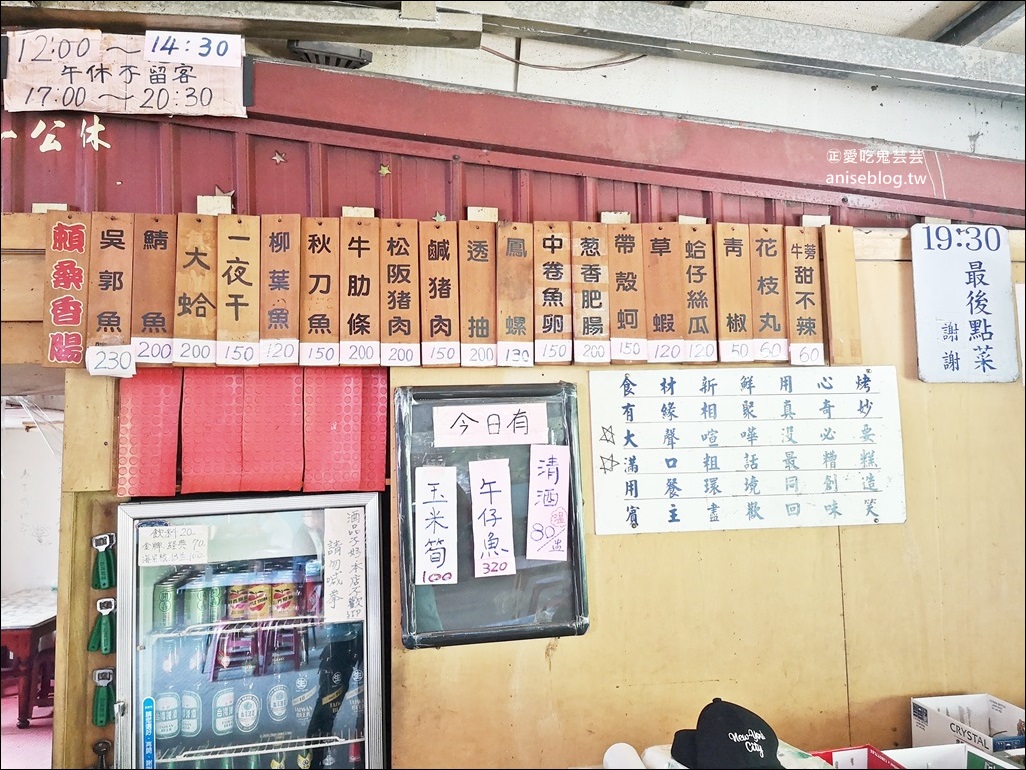 12:00～14:30
午休不留客
17:00～20:30
一公休
㊣愛吃鬼芸芸
aniseblog.tw
賴桑香腸
吳郭魚
230
鯖魚
200
大蛤
200
一夜干
150
柳葉魚
120
秋刀魚
150
牛肋條
200
松阪豬肉
200
鹹豬肉
150
透抽
200
鳳螺
130
中卷魚卵
150
葱香肥腸
200
帶殼蚵
150
草蝦
120
蛤仔絲瓜
120
青椒
50
花枝丸
60
牛蒡甜不辣
60
19:30
最後點菜
謝謝
食材新鮮用心烤
有緣相聚真奇妙
大聲喧嘩沒必要
滿口粗話最糟糕
用餐環境同創造
賓主盡歡回味笑
今日有
玉米筍
100
午仔魚
320
清酒
80
飲料20
金牌 經典 70
請勿喊拳
New York
City
CRYSTAL